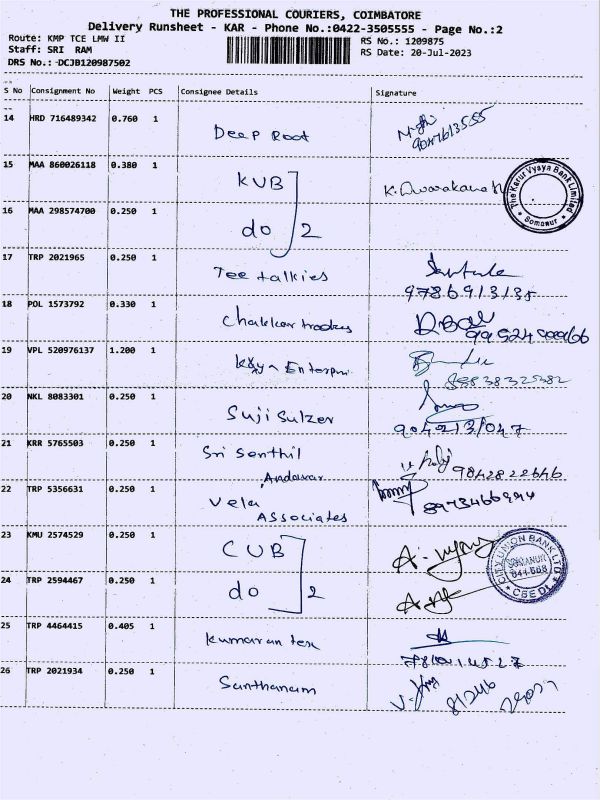 THE PROFESSIONAL COURIERS, COIMBATORE
Delivery Runsheet - KAR - Phone No.:0422-3505555 - Page No.:2
Route: KMP TCE LMW II
RS No.: 1209875
Staff: SRI RAM
RS Date: 20-Jul-2023
DRS No.: DCJB120987502
S No Consignment No Weight PCS Consignee Details Signature
14 HRD 716489342 0.760 1 Deep Root
15 MAA 860026118 0.380 1 KVB K. Dwarakanath
The Karur Vysya Bank Limited
Somanur
16 MAA 298574700 0.250 1 do 2
17 TRP 2021965 0.250 1 Tee talkies
9786913135
18 POL 1573792 0.330 1
19 VPL 520976137 1.200 1
8883832382
20 NKL 8083301 0.250 1 Suji Sulzer
9042131047
21 KRR 5765503 0.250 1 Sri Senthil
Andavar
9842822646
22 TRP 5356631 0.250 1 Vela
Associates
23 KMU 2574529 0.250 1 CUB
CITY UNION BANK LTD
SOMANUR
641 668
CBE DT.
24 TRP 2594467 0.250 1 do 2
25 TRP 4464415 0.405 1 Kumaran tex
26 TRP 2021934 0.250 1 Santhanam